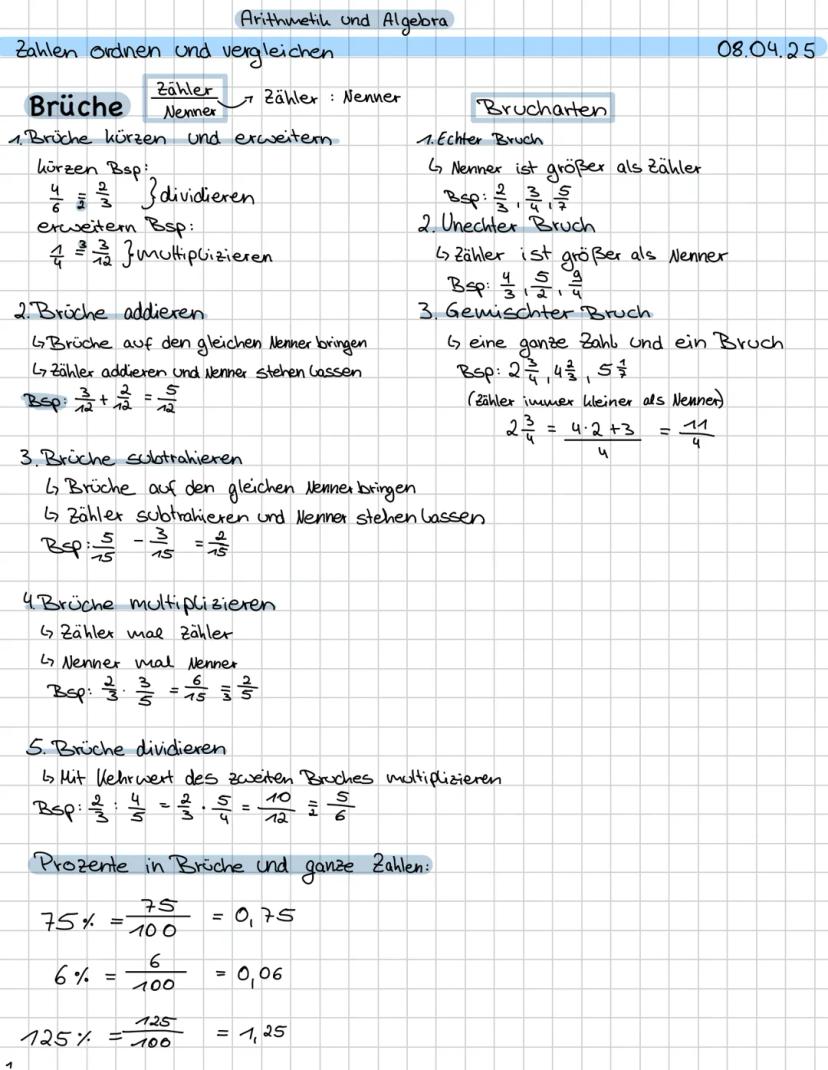 Arithmetik und Algebra
Zahlen ordnen und vergleichen 08.04.25
Brüche Zähler/Nenner → Zähler : Nenner
1. Brüche kürzen und erweitern
kürzen Bsp:
4/6 =2 2/3 } dividieren
erweitern Bsp:
1/4 =3 3/12 } multiplizieren
2. Brüche addieren
↳ Brüche auf den gleichen Nenner bringen
↳ Zähler addieren und Nenner stehen lassen
Bsp: 3/12 + 2/12 = 5/12
3. Brüche subtrahieren
↳ Brüche auf den gleichen Nenner bringen
↳ Zähler subtrahieren und Nenner stehen lassen
Bsp: 5/15 - 3/15 = 2/15
4. Brüche multiplizieren
↳ Zähler mal Zähler
↳ Nenner mal Nenner
Bsp: 2/3 · 3/5 = 6/15 =3 2/5
5. Brüche dividieren
↳ Mit Kehrwert des zweiten Bruches multiplizieren
Bsp: 2/3 : 4/5 = 2/3 · 5/4 = 10/12 =2 5/6
Brucharten
1. Echter Bruch
↳ Nenner ist größer als Zähler
Bsp: 2/3, 3/4, 5/7
2. Unechter Bruch
↳ Zähler ist größer als Nenner
Bsp: 4/3, 5/2, 9/4
3. Gemischter Bruch
↳ eine ganze Zahl und ein Bruch
Bsp: 2 3/4, 4 2/3, 5 1/7
(Zähler immer kleiner als Nenner)
2 3/4 = 4·2+3/4 = 11/4
Prozente in Brüche und ganze Zahlen:
75% = 75/100 = 0,75
6% = 6/100 = 0,06
125% = 125/100 = 1,25